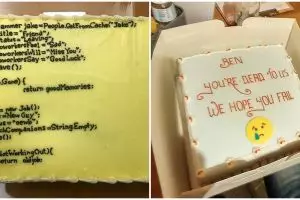 ammer jake=People.GetFromCache("Jake");
title= "Friend";
status="Leaving";
oworkersFeel = "Sad";
oworkersWill="Miss You";
oworkersSay="Good Luck";
ave();
Gone) {
return goodMemories;
= new Job();
="New Guy";
us="newb";
hCompanions=String.Empty;
e();
otWorkingOut){
return oldjob;
BEN
YOU'RE DEAD TO US
WE HOPE YOU FAIL